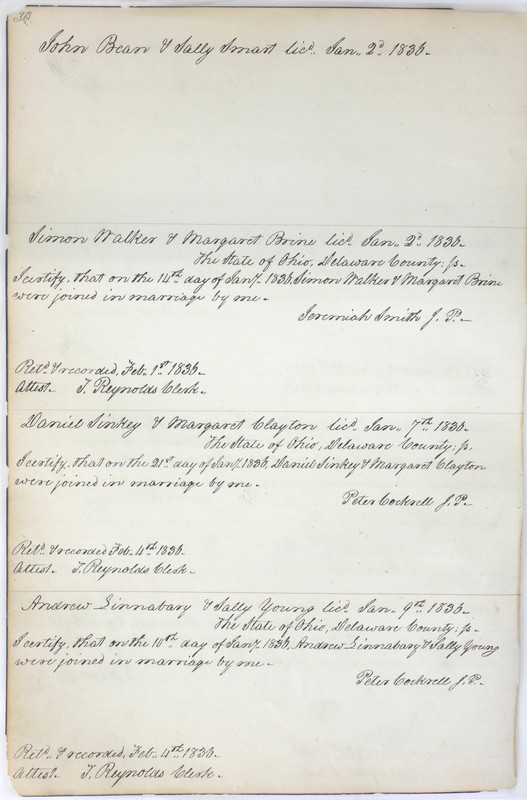 John Bean & Sally Smart licd. Jan. 2d. 1836.
Simon Walker & Margaret Brine licd. Jan. 2d. 1836.
The State of Ohio, Delaware County; ss.
I certify, that on the 14th day of Jany. 1836, Simon Walker & Margaret Brine
were joined in marriage by me.
Jeremiah Smith J. P.
Retd. & recorded, Feb. 1st 1836.
Attest. T. Reynolds Clerk.
Daniel Sinkey & Margaret Clayton licd. Jan. 7th 1836.
The State of Ohio, Delaware County; ss.
I certify, that on the 21st day of Jany. 1836, Daniel Sinkey & Margaret Clayton
were joined in marriage by me.
Peter Cockrell J. P.
Retd. & recorded Feb. 4th 1836.
Attest. T. Reynolds Clerk.
Andrew Linnabary & Sally Young licd. Jan. 9th 1836.
The State of Ohio, Delaware County; ss.
I certify, that on the 10th day of Jany. 1836, Andrew Linnabary & Sally Young
were joined in marriage by me.
Peter Cockrell J. P.
Retd. & recorded, Feb. 4th 1836.
Attest. T. Reynolds Clerk.